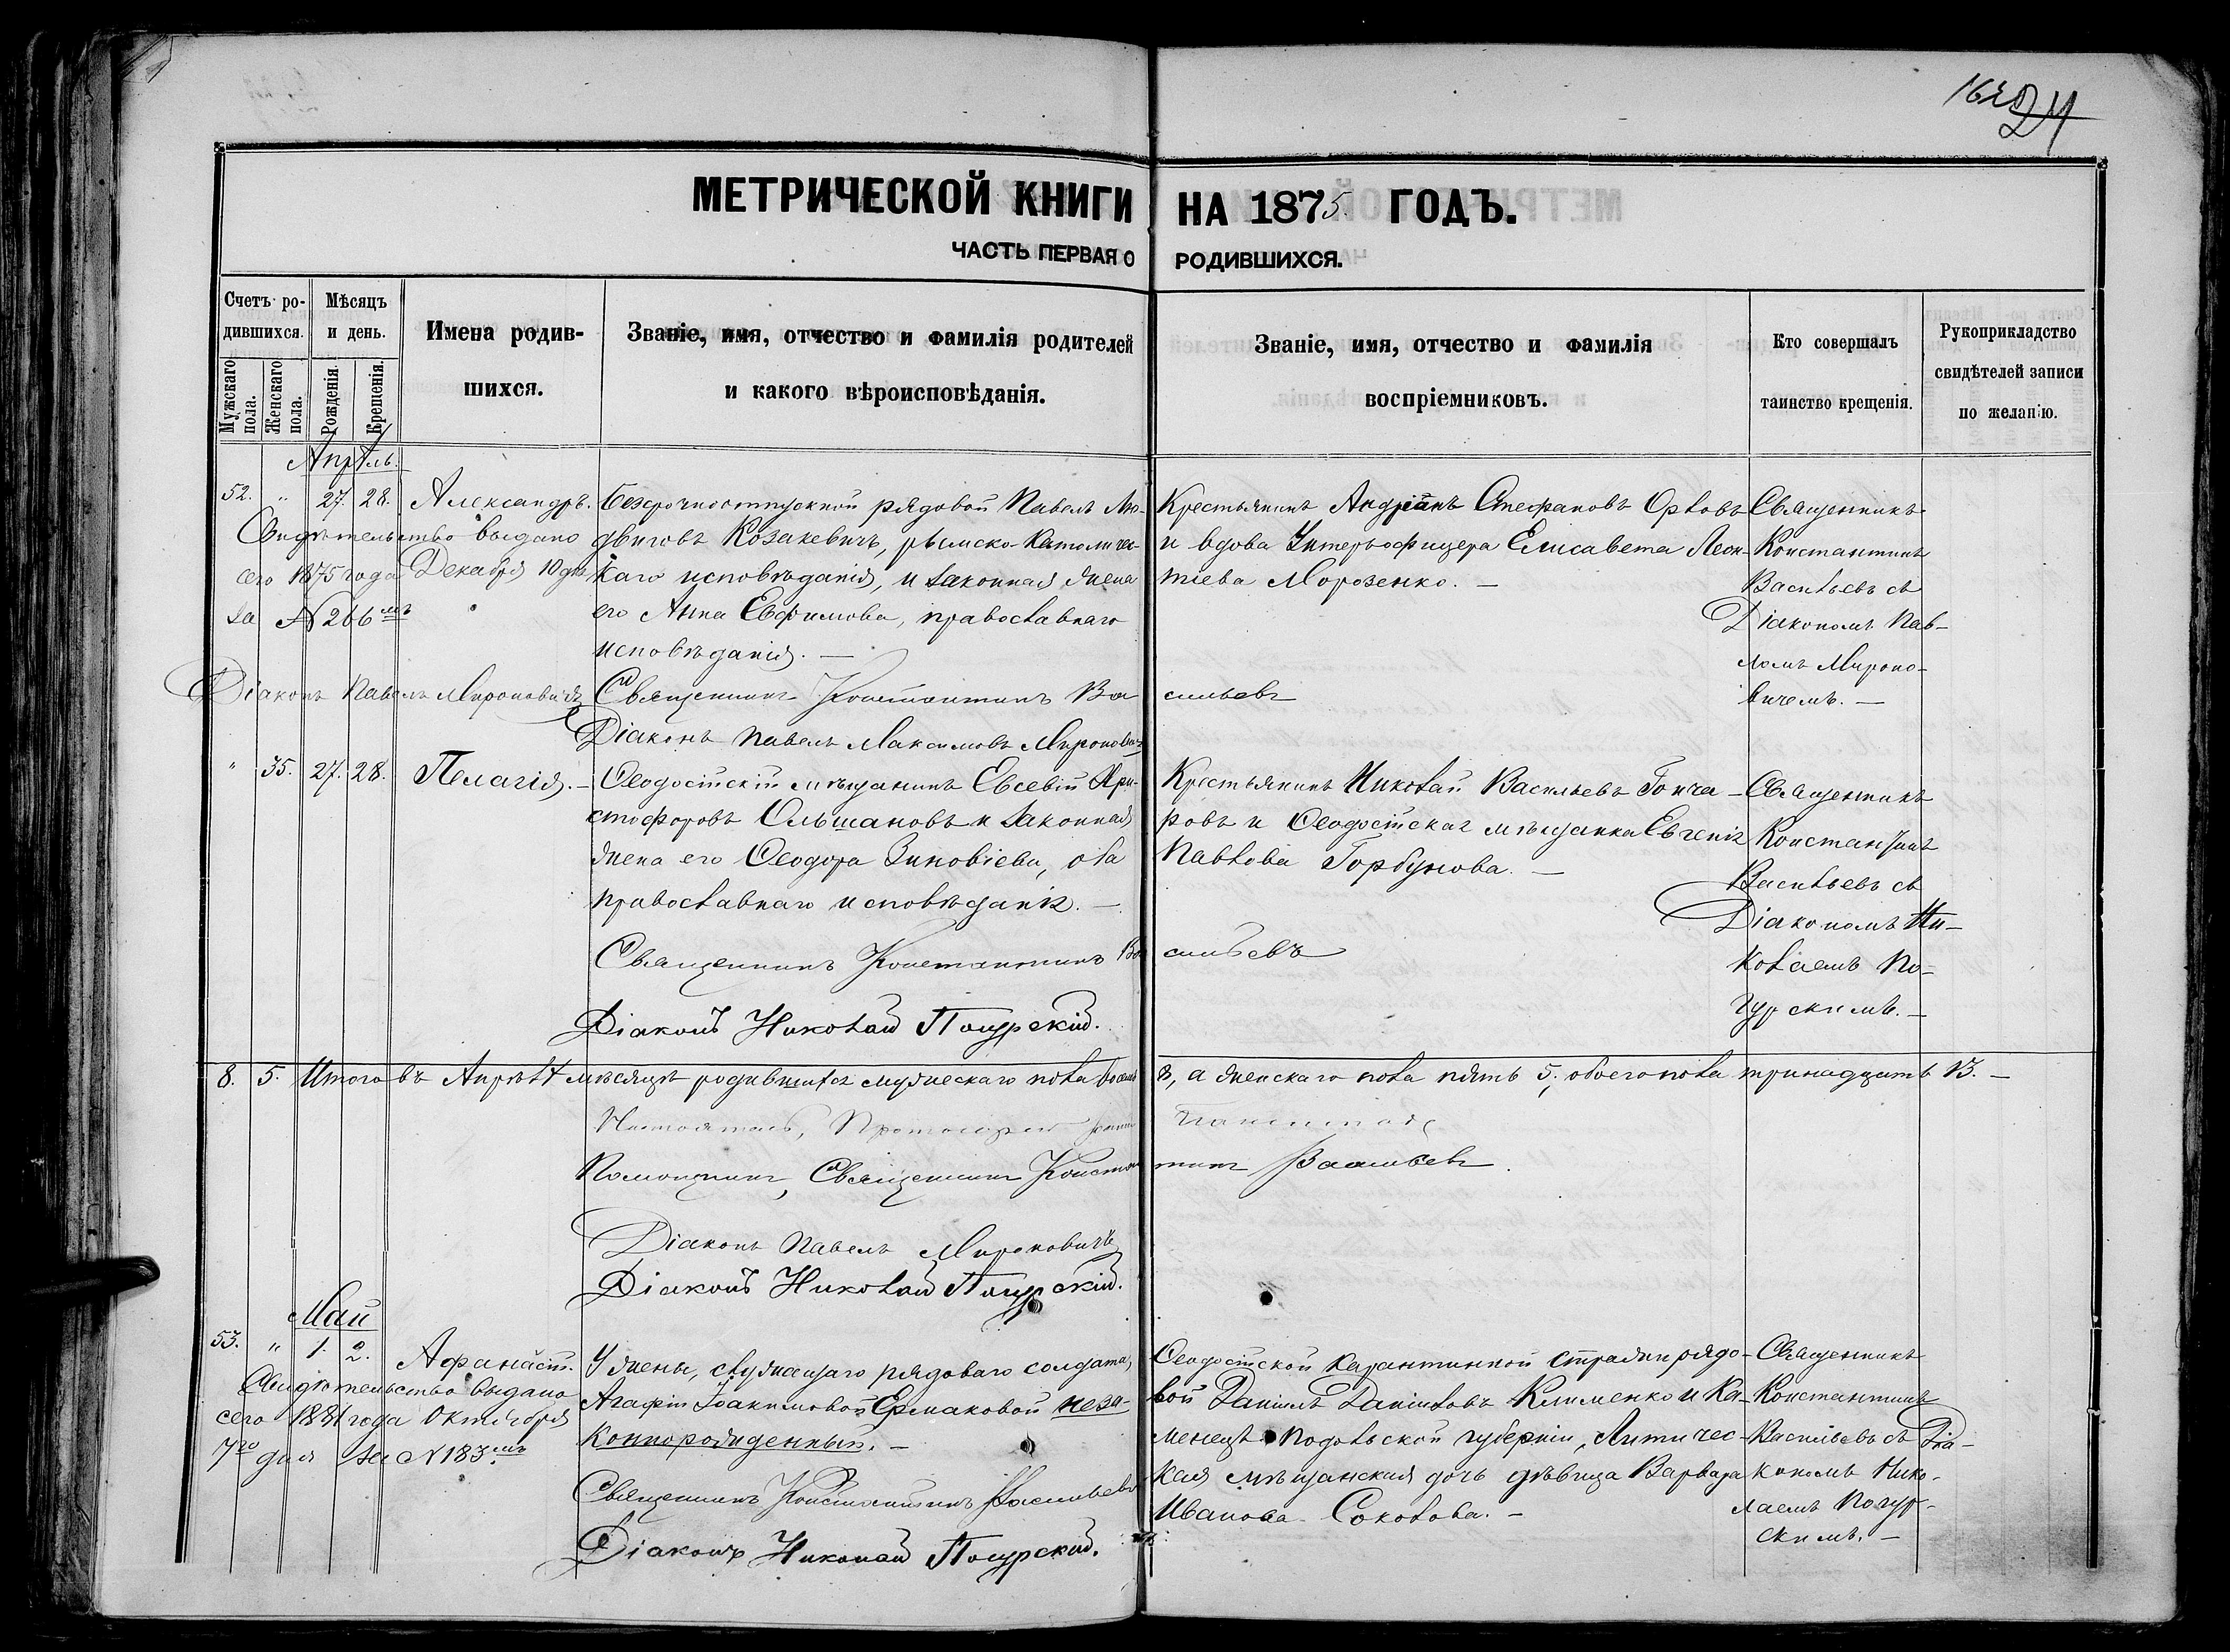 24
МЕТРИЧЕСКОЙ КНИГИ НА 1875 ГОДЪ.
ЧАСТЬ ПЕРВАЯ О РОДИВШИХСЯ.
Счетъ ро-
дившихся.
Мужскаго пола.
Женскаго пола.
Мѣсяцъ
и день.
Рожденія.
Крещенія.
Имена родив-
шихся.
Званіе, имя, отчество и фамилія родителей
и какого вѣроисповѣданія.
Званіе, имя, отчество и фамилія
воспріемниковъ.
Кто совершалъ
таинство крещенія.
Рукоприкладство
свидѣтелей записи
по желанію.
Апрѣль.
52. " 27. 28. Александръ.
Свидѣтельство выдано
сего 1875 года Декабря 10 дня
за N 266мъ
Діаконъ Павелъ Мироновичъ
Безсрочноотпускной рядовой Павелъ Лю-
двиговъ Козакевичъ, римско-католичес-
каго исповѣданія, и законная жена
его Анна Евфимова, православнаго
исповѣданія. —
Крестьянинъ Андріанъ Стефановъ Орловъ
и вдова Унтеръ-офицера Елисавета Леон-
тіева Морозенко. —
Священникъ
Константинъ
Васильевъ съ
Діакономъ Пав-
ломъ Мироно-
вичемъ. —
Священникъ Константинъ Васильевъ
Діаконъ Павелъ Максимовъ Мироновичъ
" 35. 27. 28. Пелагія. —
Ѳеодосійскій мѣщанинъ Евсевій Хри-
стофоровъ Ольшановъ и законная
жена его Ѳеодора Зиновіева, оба
православнаго исповѣданія. —
Крестьянинъ Николай Васильевъ Гонча-
ровъ и Ѳеодосійская мѣщанка Евгенія
Павлова Горбунова. —
Священникъ
Константинъ
Васильевъ съ
Діакономъ Ни-
колаемъ По-
гурскимъ. —
Священникъ Константинъ Васильевъ
Діаконъ Николай Погурскій.
8. 5. Итого въ Апрѣлѣ мѣсяцѣ родившихся мужескаго пола восемь 8, а женскаго пола пять 5, обоего пола тринадцать 13. —
Настоятель, Протоіерей
Помощникъ, Священникъ Константинъ Васильевъ.
Діаконъ Павелъ Мироновичъ
Діаконъ Николай Погурскій.
Май
53. " 1. 2. Аѳанасій.
Свидѣтельство выдано
сего 1881 года Октября
7го дня за N 183.мъ
У жены, служащаго рядоваго солдата,
Агафіи Іоакимовой Ермаковой неза-
коннорожденный. —
Ѳеодосійской Карантинной Стражи рядо-
вой Даніилъ Даніиловъ Клименко и Ка-
менецъ Подольской губерніи, Литичес-
кая мѣщанская дочь дѣвица Варвара
Иванова Соколова. —
Священникъ
Константинъ
Васильевъ съ Діа-
кономъ Нико-
лаемъ Погур-
скимъ. —
Священникъ Константинъ Васильевъ
Діаконъ Николай Погурскій.